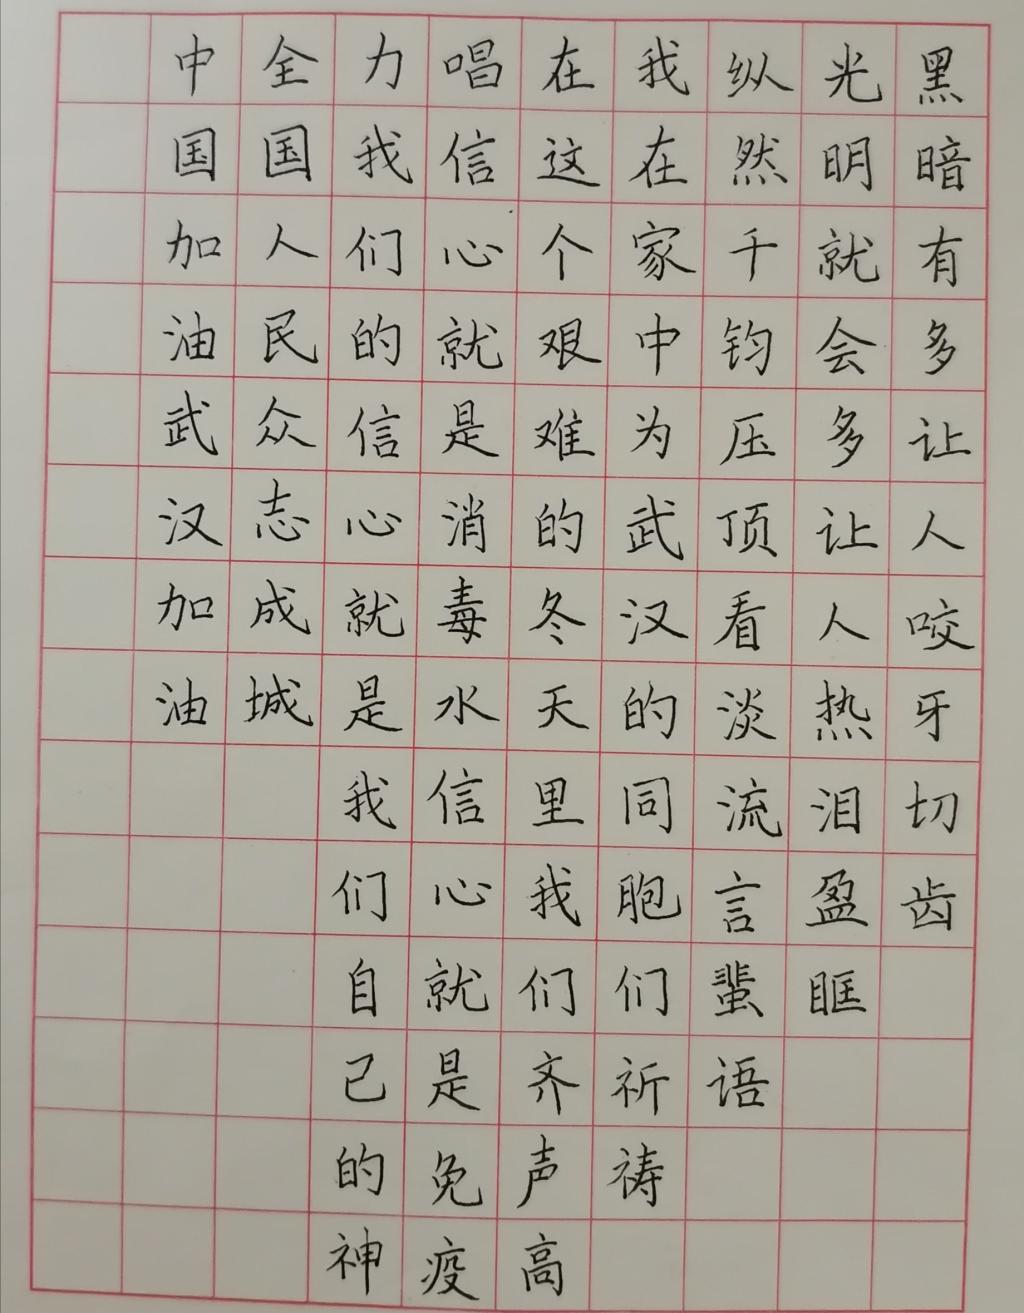 黑暗有多让人咬牙切齿
光明就会多让人热泪盈眶
纵然千钧压顶看淡流言蜚语
我在家中为武汉的同胞们祈祷
在这个艰难的冬天里我们齐声高
唱信心就是消毒水信心就是免疫
力我们的信心就是我们自己的神
全国人民众志成城
中国加油武汉加油